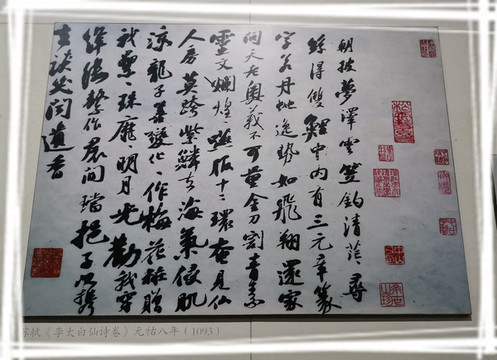 朝披夢澤雲笠釣清茫々尋
絲得雙鯉中内有三元章篆
字若丹蛇逸勢如飛翔還家
問天老奧義不可量金刀割青素
靈文爛煌々嚥服十二環奄見仙
人房莫跨紫鱗去海氣侵肌
涼龍子善變化々作梅花粧贈
我纍々珠靡々明月光勸我穿
絳縷繫作裙間璫挹子以攜
去談笑聞遺香
苏轼《李太白仙诗卷》元祐八年（1093）